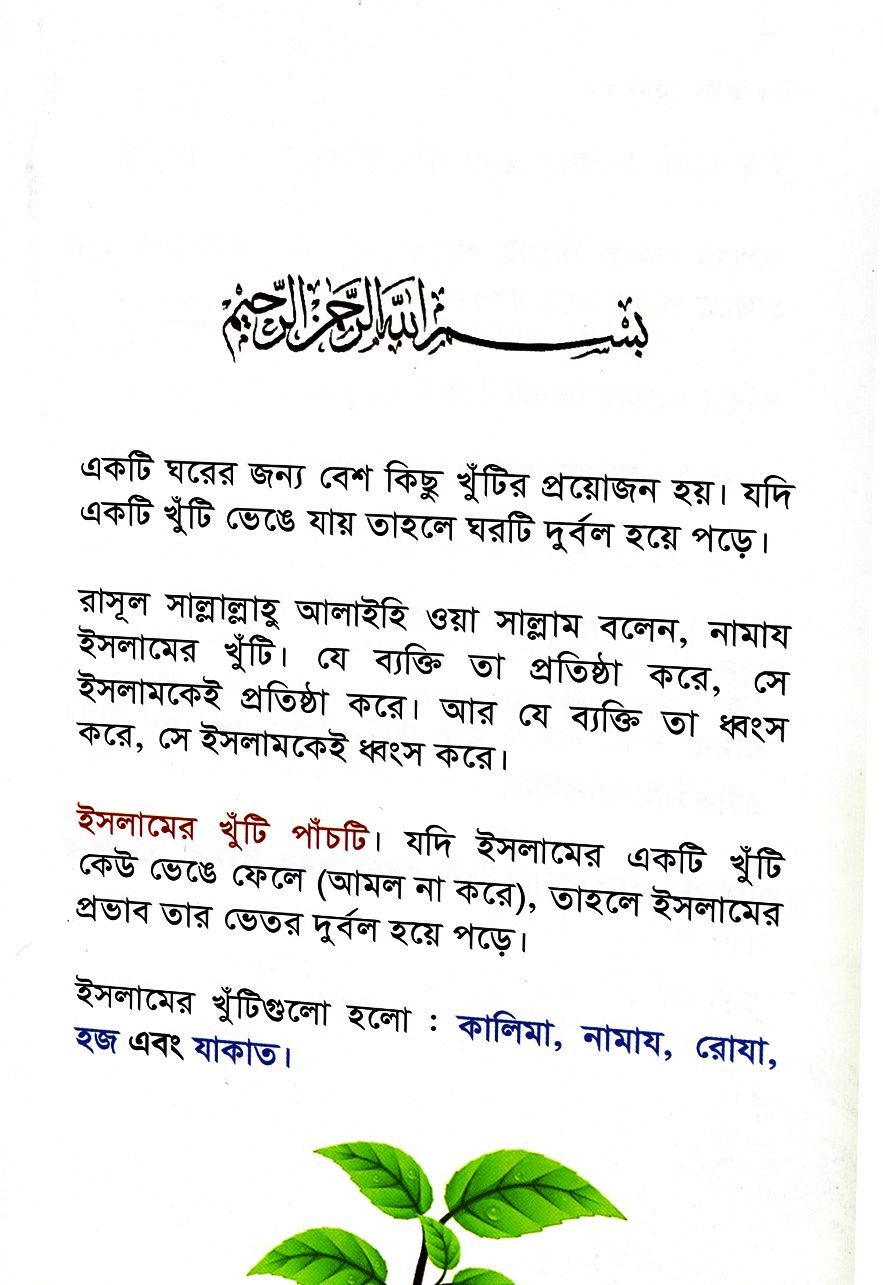 بسم الله الرحمن الرحيم
একটি ঘরের জন্য বেশ কিছু খুঁটির প্রয়োজন হয়। যদি
একটি খুঁটি ভেঙে যায় তাহলে ঘরটি দুর্বল হয়ে পড়ে।
রাসূল সাল্লাল্লাহু আলাইহি ওয়া সাল্লাম বলেন, নামায
ইসলামের খুঁটি। যে ব্যক্তি তা প্রতিষ্ঠা করে, সে
ইসলামকেই প্রতিষ্ঠা করে। আর যে ব্যক্তি তা ধ্বংস
করে, সে ইসলামকেই ধ্বংস করে।
ইসলামের খুঁটি পাঁচটি। যদি ইসলামের একটি খুঁটি
কেউ ভেঙে ফেলে (আমল না করে), তাহলে ইসলামের
প্রভাব তার ভেতর দুর্বল হয়ে পড়ে।
ইসলামের খুঁটিগুলো হলো : কালিমা, নামায, রোযা,
হজ এবং যাকাত।